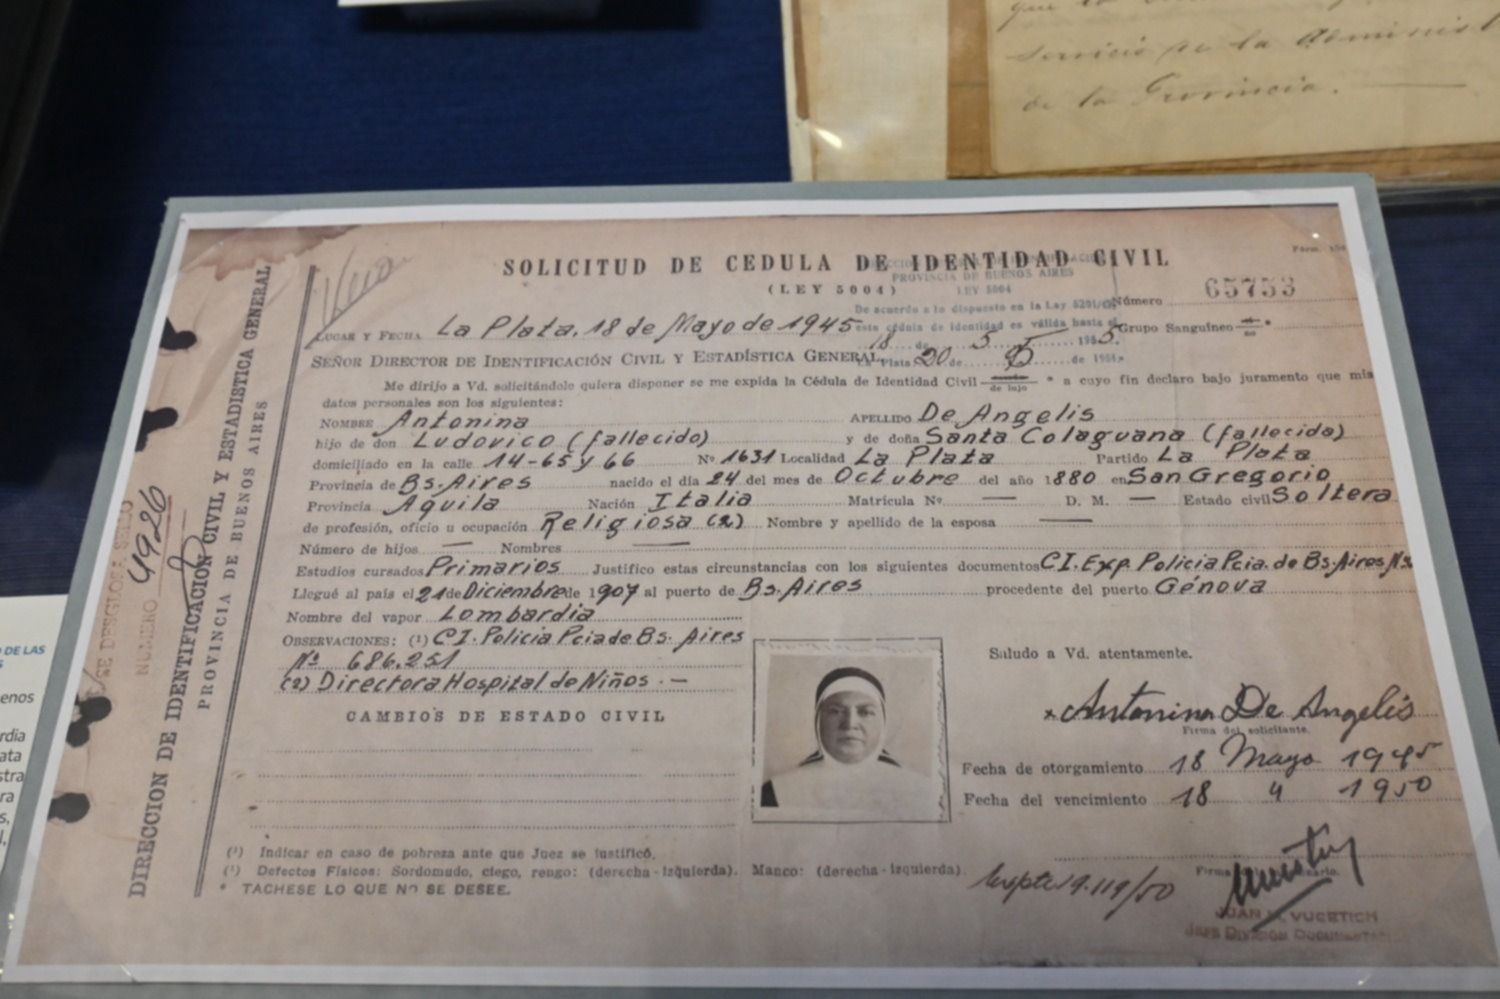 servicio de la Administ
de la Provincia.
SOLICITUD DE CEDULA DE IDENTIDAD CIVIL
(LEY 5004)
PROVINCIA DE BUENOS AIRES
LEY 5004
Número 65753
De acuerdo a lo dispuesto en la Ley 5201/
esta cédula de identidad es válida hasta el
18 de 5 195 5.
La Plata 20 de 5 de 195
Grupo Sanguíneo
LUGAR Y FECHA La Plata, 18 de Mayo de 1945
SEÑOR DIRECTOR DE IDENTIFICACIÓN CIVIL Y ESTADÍSTICA GENERAL
Me dirijo a Vd. solicitándole quiera disponer se me expida la Cédula de Identidad Civil * a cuyo fin declaro bajo juramento que mis
datos personales son los siguientes:
NOMBRE Antonina APELLIDO De Angelis
hijo de don Ludovico (fallecido) y de doña Santa Colaguana (fallecida)
domiciliado en la calle 14-65 y 66 Nº 1631 Localidad La Plata Partido La Plata
Provincia de Bs. Aires nacido el día 24 del mes de Octubre del año 1880 en San Gregorio
Provincia Aquila Nación Italia Matrícula Nº — D. M. — Estado civil Soltera
de profesión, oficio u ocupación Religiosa (2) Nombre y apellido de la esposa —
Número de hijos — Nombres —
Estudios cursados Primarios Justifico estas circunstancias con los siguientes documentos C.I. Exp. Policia Pcia. de Bs. Aires Nº
Llegué al país el 21 de Diciembre de 1907 al puerto de Bs. Aires procedente del puerto Génova
Nombre del vapor Lombardia
OBSERVACIONES: (1) C.I. Policia Pcia de Bs. Aires
Nº 686.251
(2) Directora Hospital de Niños. —
CAMBIOS DE ESTADO CIVIL
Saludo a Vd. atentamente.
Antonina De Angelis
Firma del solicitante.
Fecha de otorgamiento 18 Mayo 1945
Fecha del vencimiento 18 4 1950
(¹) Indicar en caso de pobreza ante que Juez se justificó.
(¹) Defectos Físicos: Sordomudo, ciego, rengo: (derecha - izquierda). Manco: (derecha - izquierda).
* TACHESE LO QUE NO SE DESEE.
19.119/50
JUAN VUCETICH
JEFE DIVISIÓN
DIRECCION DE IDENTIFICACION CIVIL Y ESTADISTICA GENERAL
PROVINCIA DE BUENOS AIRES
SE DESGLOSA SELLO
NUMERO 4926